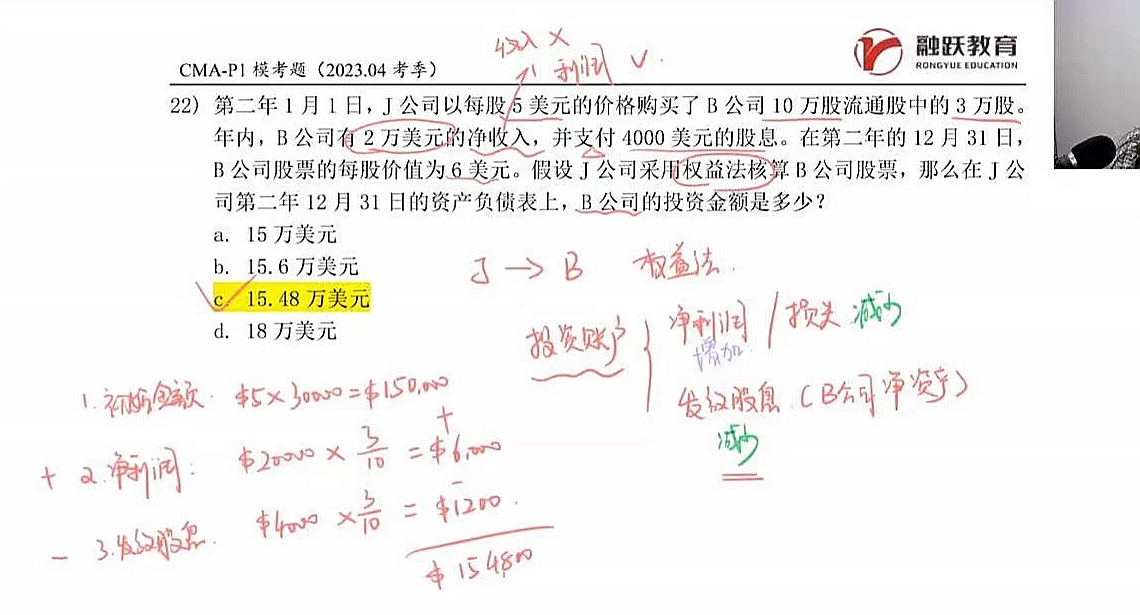 收入 ×
利润 ✓
融跃教育
RONGYUE EDUCATION
CMA-P1 模考题（2023.04 考季）
22）第二年 1 月 1 日，J 公司以每股 5 美元的价格购买了 B 公司 10 万股流通股中的 3 万股。
年内，B 公司有 2 万美元的净收入，并支付 4000 美元的股息。在第二年的 12 月 31 日，
B 公司股票的每股价值为 6 美元。假设 J 公司采用权益法核算 B 公司股票，那么在 J 公
司第二年 12 月 31 日的资产负债表上，B 公司的投资金额是多少？
a. 15 万美元
b. 15.6 万美元
c. 15.48 万美元
d. 18 万美元
J → B 权益法.
投资账户
净利润 / 损失 减少
增加.
发放股息.（B公司净资产）
减少
1. 初始金额. $5 × 30000 = $150,000
+
+ 2. 净利润: $20000 × 3/10 = $6,000
−
− 3. 发放股息. $4000 × 3/10 = $1200.
$154800